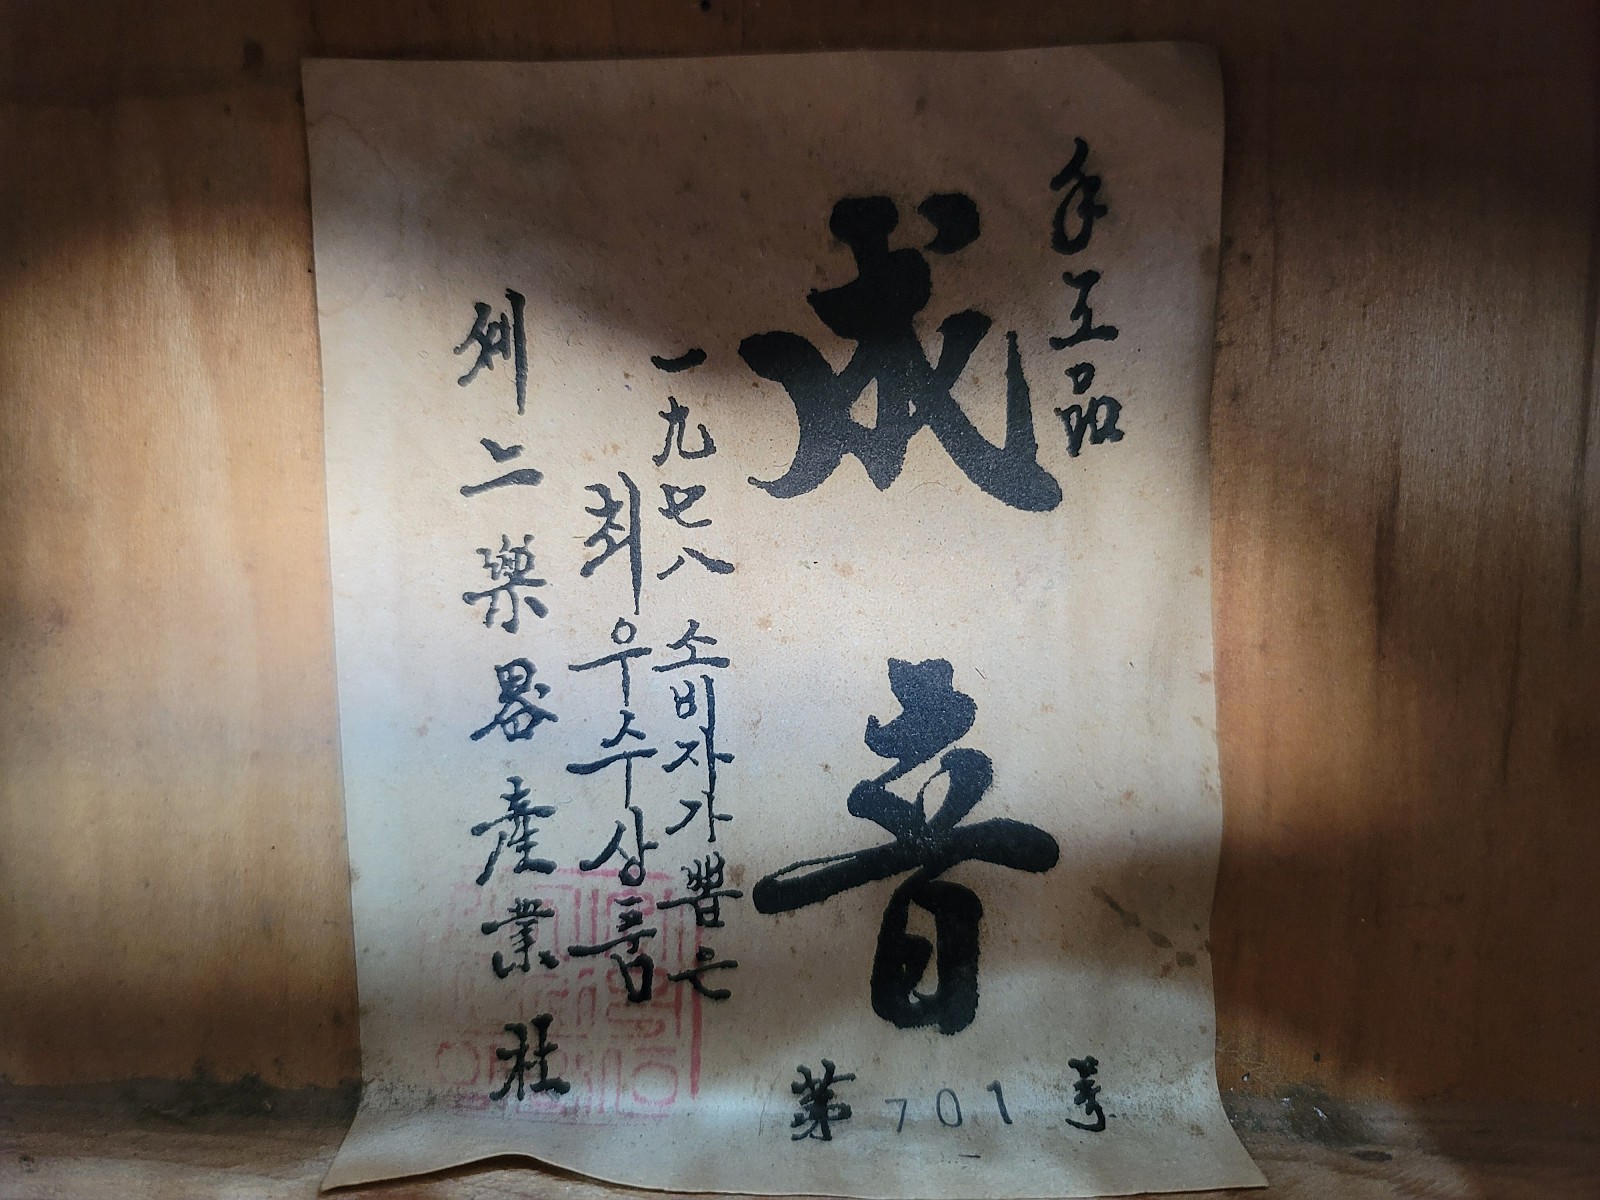 手工品
成音
第701号
一九七八 소비자가 뽑은
최우수상품
제二樂器産業社